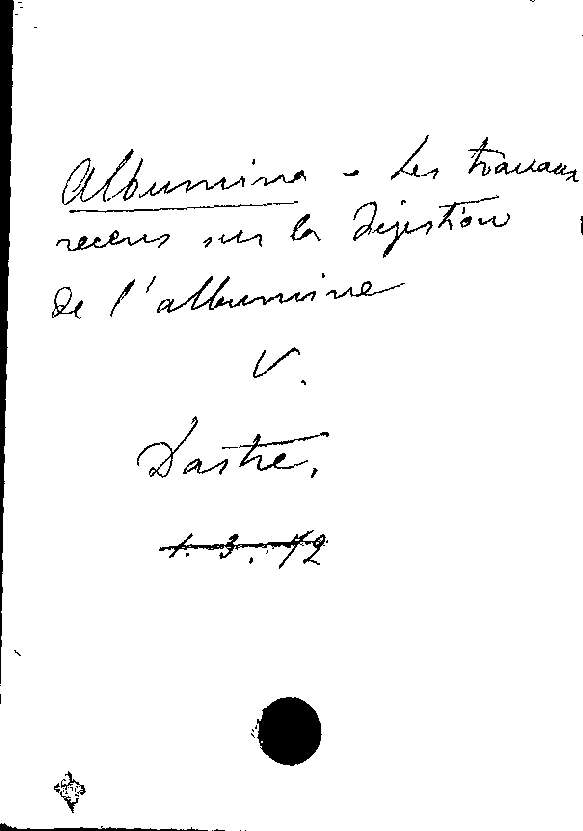 Albumina - Les travaux
recens sur la digestion
de l'albumine
V.
Dastre.
1. 3. 12